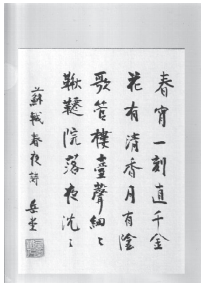 春宵一刻直千金
花有清香月有陰
歌管樓臺聲細〻
鞦韆院落夜沈〻
蘇軾春夜詩 岳堂